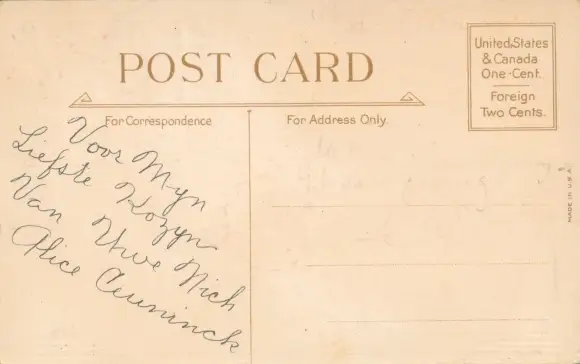 POST CARD
United States
& Canada
One-Cent.
Foreign
Two Cents.
For Correspondence
For Address Only.
Voor Myn
Liefste Kozyn
Van Uwe Nich
Alice Ceuninck
MADE IN U.S.A.